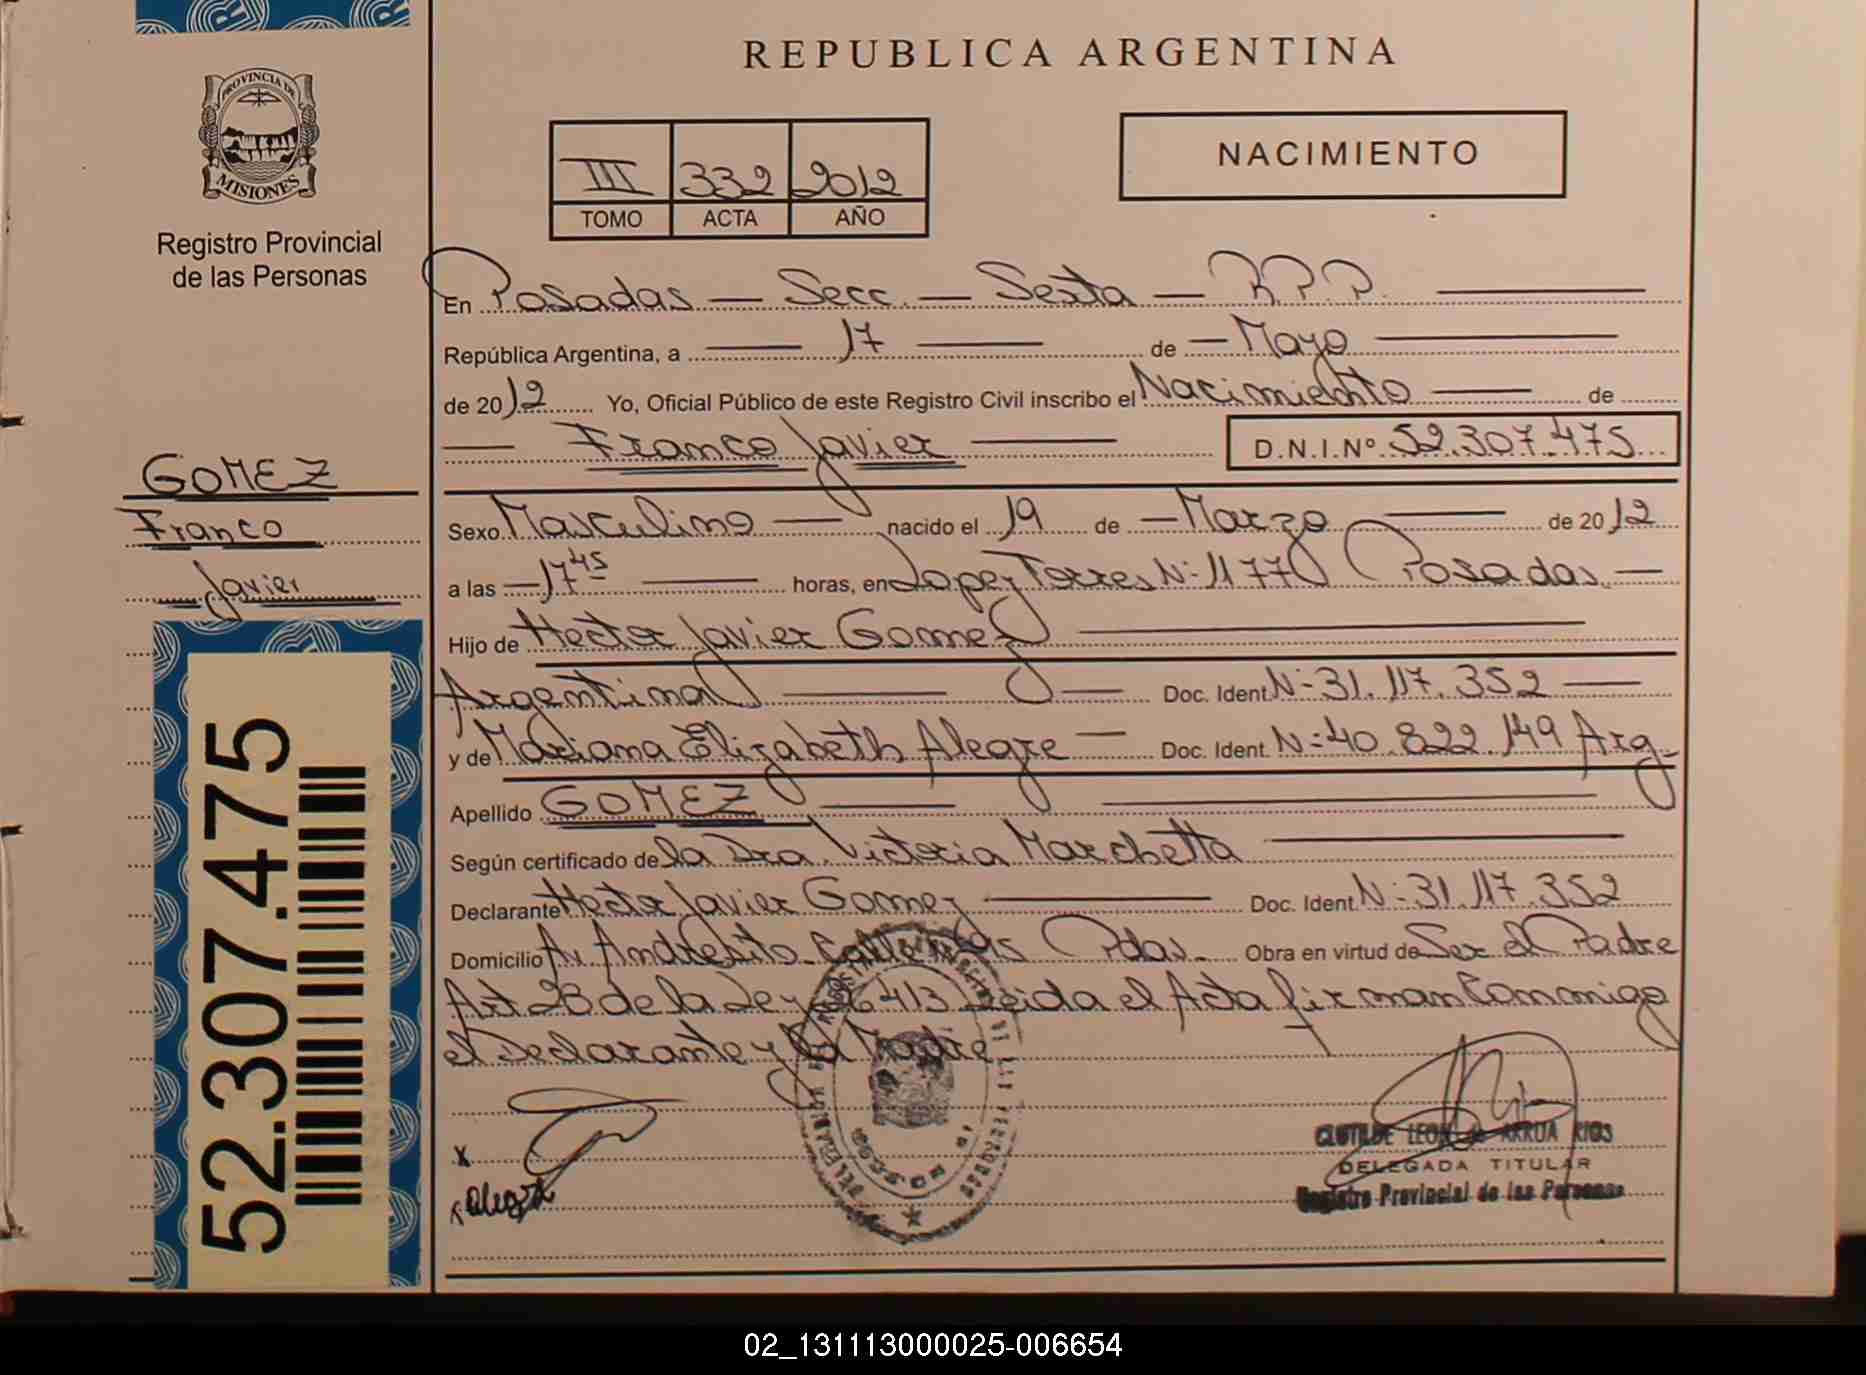 REPUBLICA ARGENTINA
PROVINCIA DE MISIONES
Registro Provincial
de las Personas
III 332 2012
TOMO ACTA AÑO
NACIMIENTO
En Posadas — Secc. — Sexta — R.P.P.
República Argentina, a 17 de Mayo
de 2012 Yo, Oficial Público de este Registro Civil inscribo el Nacimiento de
Franco Javier D.N.I.Nº 52.307.475
GOMEZ
Franco
Javier
52.307.475
Sexo Masculino nacido el 19 de Marzo de 2012
a las 17 45 horas, en Lopez Torres Nº 1177 Posadas
Hijo de Hector Javier Gomez
Argentina Doc. Ident. Nº 31.117.352
y de Mariana Elizabeth Alegre Doc. Ident. Nº 40.822.149 Arg.
Apellido GOMEZ
Según certificado de la Dra. Victoria Marchetta
Declarante Hector Javier Gomez Doc. Ident. Nº 31.117.352
Domicilio Av. Andresito Pdas. Obra en virtud de Ser el Padre
Art 28 de la Ley 26.413 Leida el Acta firman Conmigo
el Declarante y la Madre
x
x Alegre
CLOTILDE LEON de ARRUA RIOS
DELEGADA TITULAR
Registro Provincial de las Personas
02_131113000025-006654